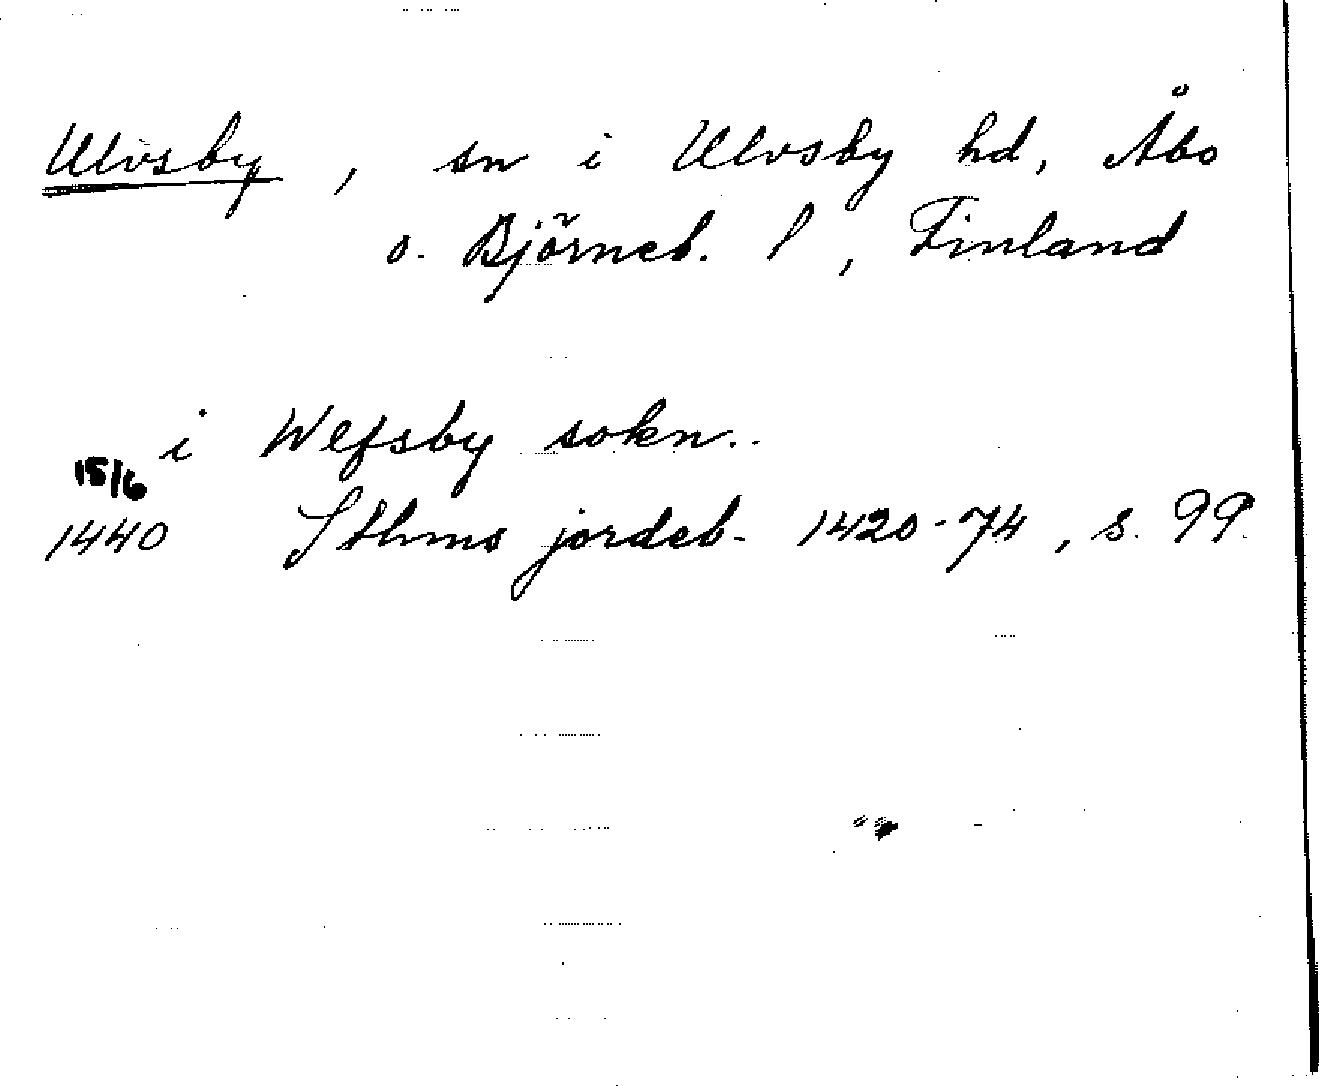 Ulvsby, sn i Ulvsby hd, Åbo
o. Björneb. l, Finland
i Wlfsby sokn..
15/6
1440 Sthms jordeb. 1420-74, s. 99.